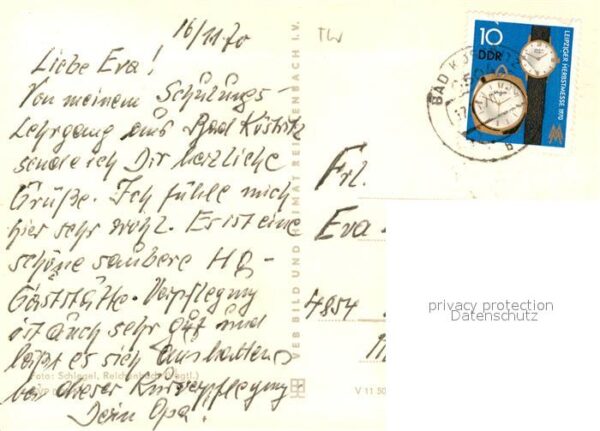 16/11 70
Liebe Eva!
Von meinem Schulungs-
Lehrgang aus Bad Köstritz
sende ich Dir herzliche
Grüße. Ich fühle mich
hier sehr wohl. Es ist eine
schöne saubere HO-
Gaststätte. Verpflegung
ist auch sehr gut und
läßt es sich aushalten
bei dieser Kurverpflegung.
Dein Opa.
Foto: Schlegel, Reichenbach (Vogtl.)
VEB BILD UND HEIMAT REICHENBACH I. V.
V 11 50
10
DDR
LEIPZIGER HERBSTMESSE 1970
BAD
b
Frl.
Eva
4854
privacy protection
Datenschutz